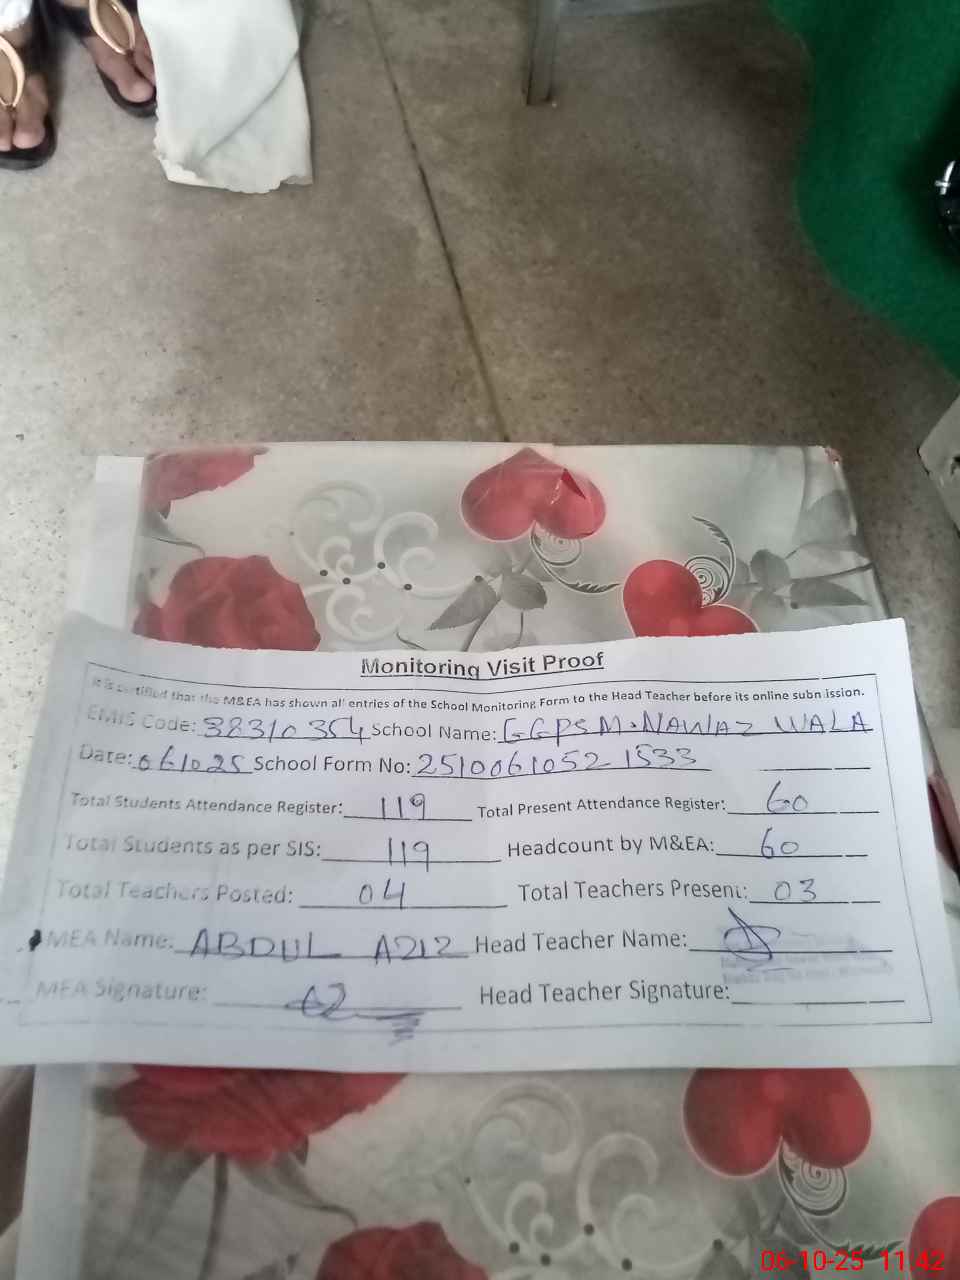 Monitoring Visit Proof
It is certified that the M&EA has shown all entries of the School Monitoring Form to the Head Teacher before its online submission.
EMIS Code: 38310354 School Name: GGPS M. NAWAZ WALA
Date: 061025 School Form No: 2510061052 1533
Total Students Attendance Register: 119 Total Present Attendance Register: 60
Total Students as per SIS: 119 Headcount by M&EA: 60
Total Teachers Posted: 04 Total Teachers Present: 03
MEA Name: ABDUL AZIZ Head Teacher Name:
MEA Signature: Head Teacher Signature:
06-10-25 11:42